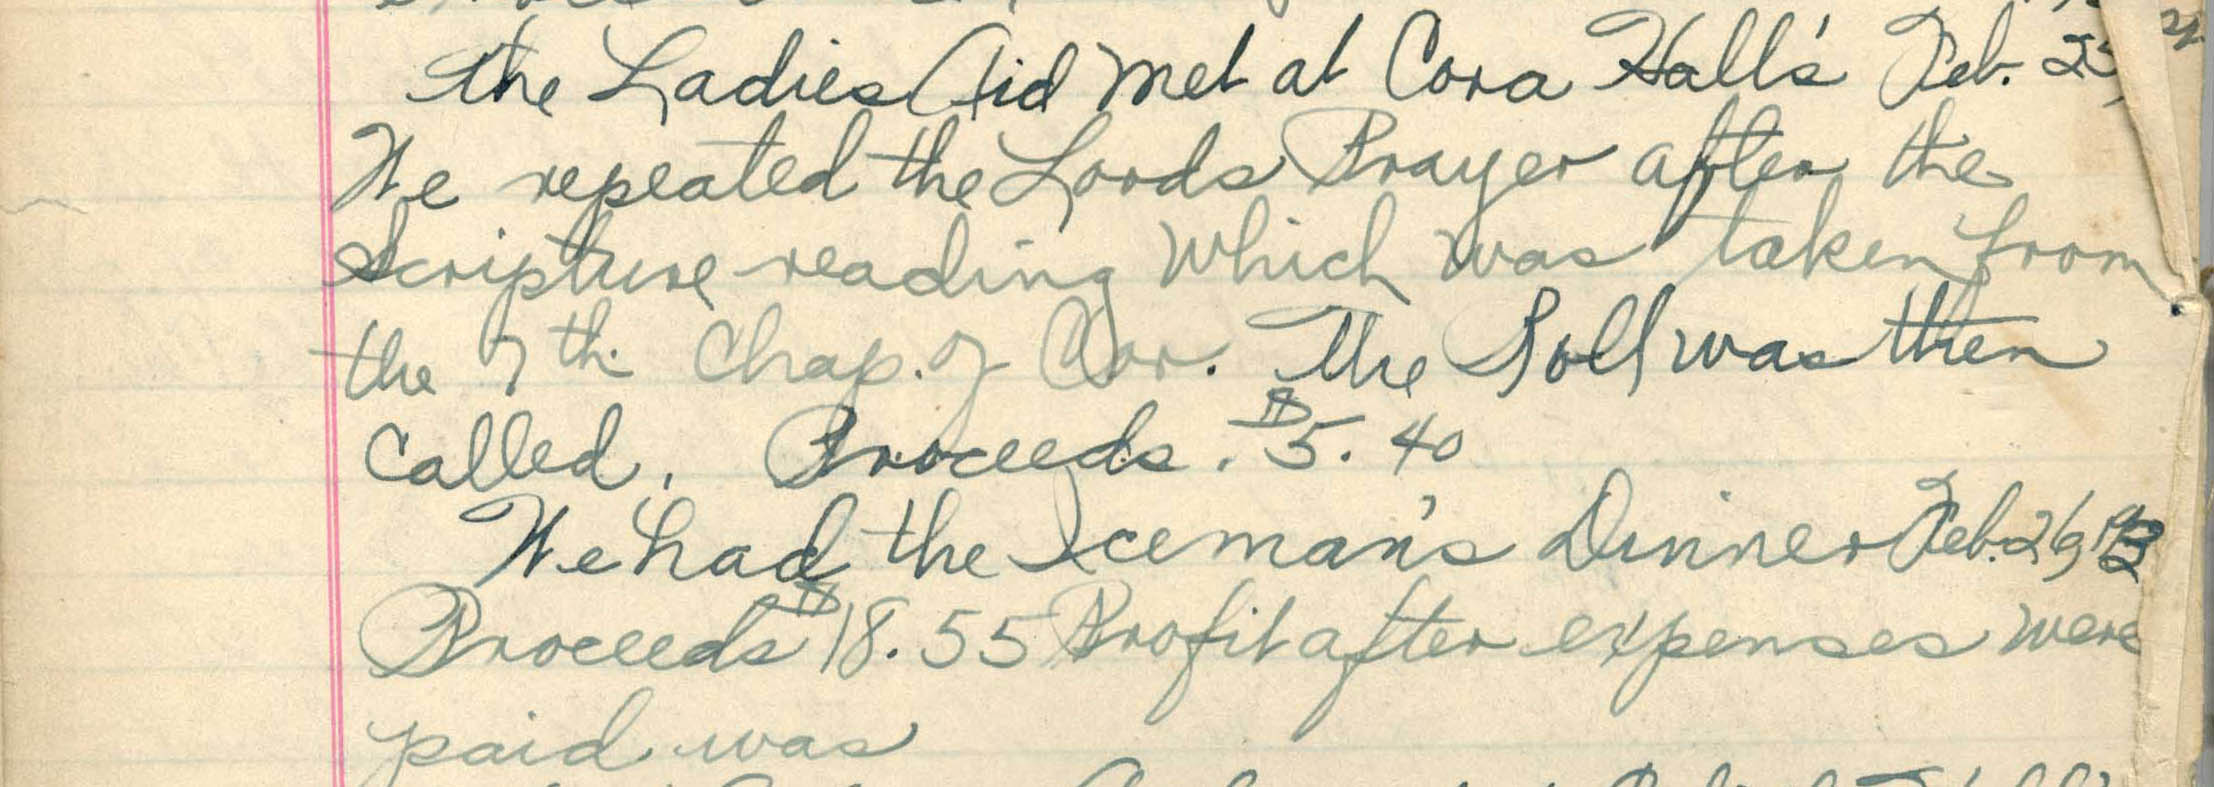 the Ladies Aid met at Cora Hall's Feb. 25,
We repeated the Lords Prayer after the
Scripture reading which was taken from
the 7th. Chap. of Cor. The Roll was then
called. Proceeds. $5.40
We had the Iceman's Dinner Feb. 26,
Proceeds $18.55 Profit after expenses were
paid was